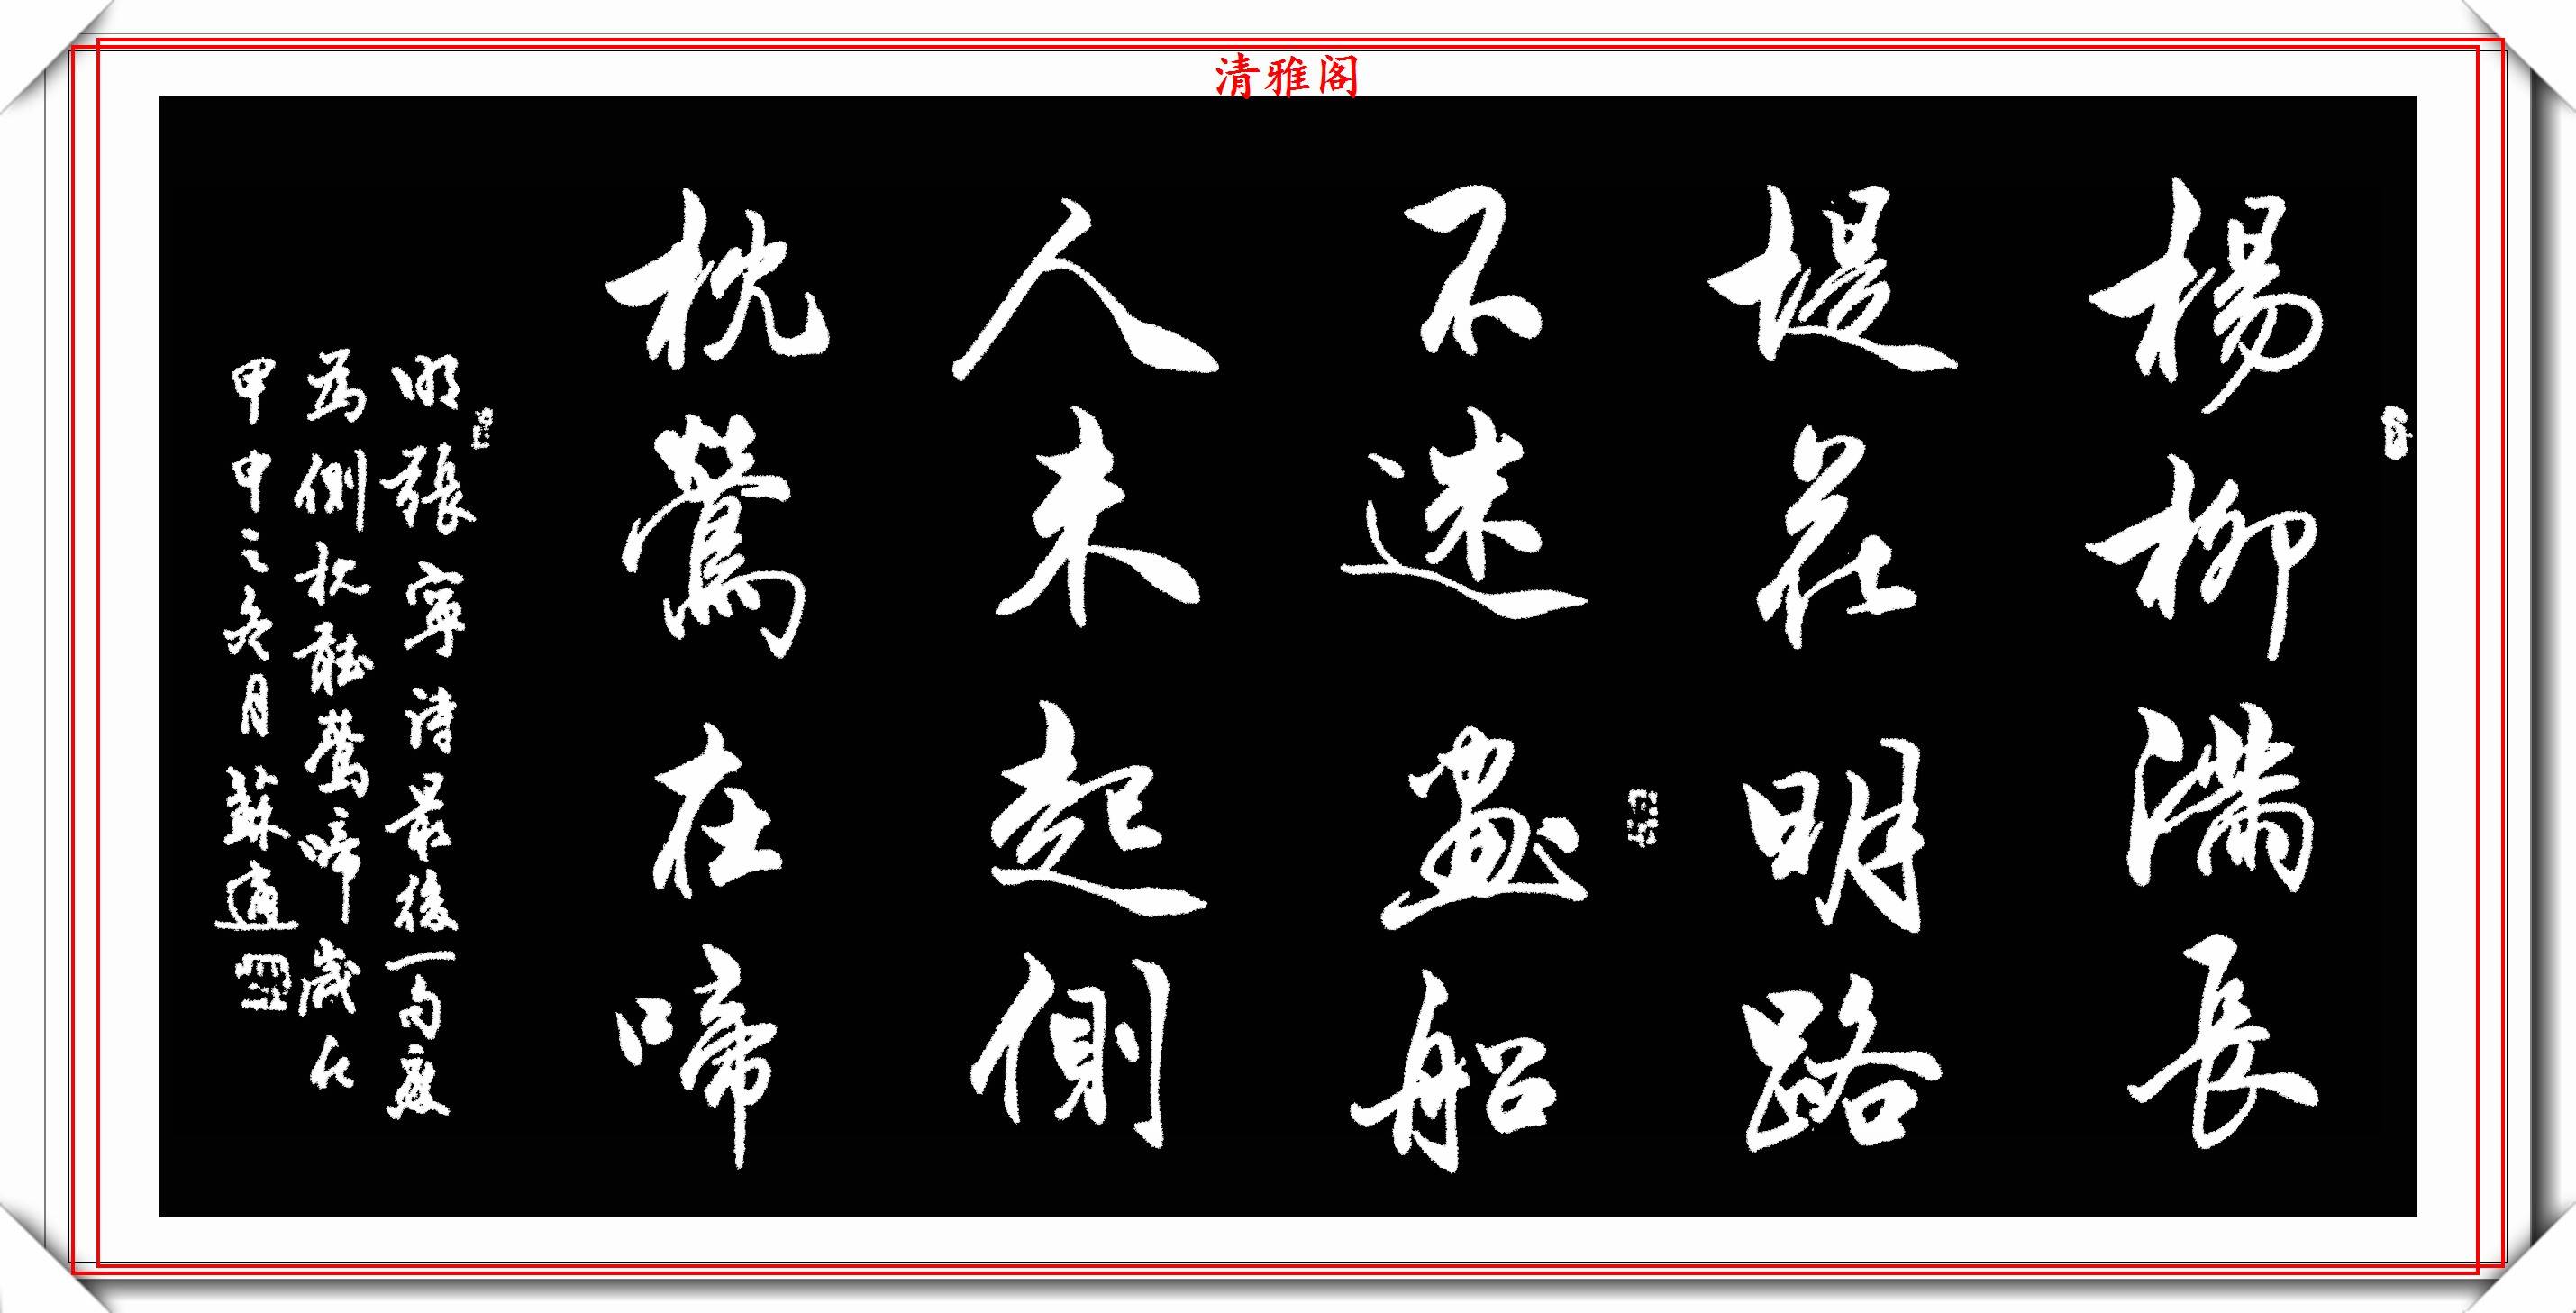 清雅阁
楊柳滿長
堤花明路
不迷畫船
人未起側
枕鶯在啼
明張寧詩最後一句應
爲側枕聽鶯啼歲在
甲申之冬月蘇適